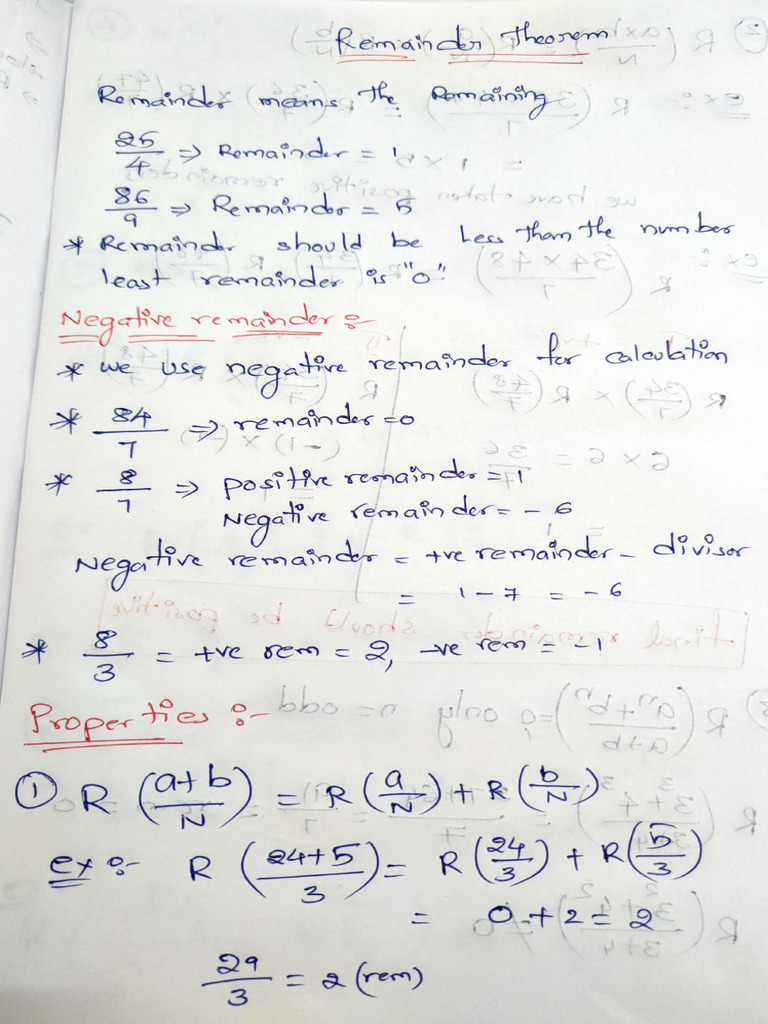 Remainder Theorem
Remainder means the Remaining
25/4 ⇒ Remainder = 1
86/9 ⇒ Remainder = 5
* Remainder should be Less than the number
least remainder is "0"
Negative remainder :-
* we use negative remainder for calculation
* 84/7 ⇒ remainder = 0
* 8/7 ⇒ positive remainder = 1
Negative remainder = - 6
Negative remainder = +ve remainder - divisor
= 1 - 7 = - 6
* 8/3 = +ve rem = 2, -ve rem = -1
Properties :-
① R (a+b/N) = R (a/N) + R (b/N)
ex :- R (24+5/3) = R (24/3) + R (5/3)
= 0 + 2 = 2
29/3 = 2 (rem)